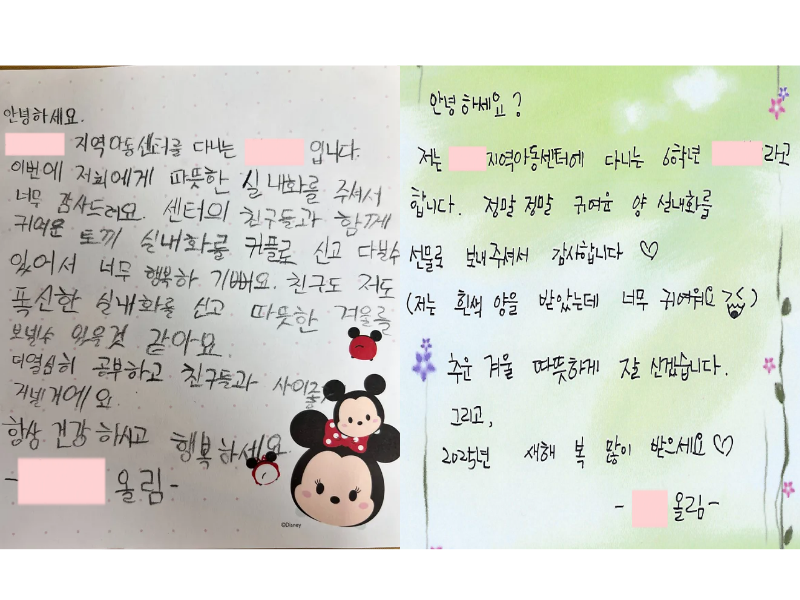 안녕하세요.
지역아동센터를 다니는 입니다.
이번에 저희에게 따뜻한 실내화를 주셔서
너무 감사드려요. 센터의 친구들과 함께
귀여운 토끼 실내화를 커플로 신고 다닐수
있어서 너무 행복하 기뻐요. 친구도 저도
폭신한 실내화를 신고 따뜻한 겨울을
보낼수 있을것 같아요
더열심히 공부하고 친구들과 사이좋게
지낼거에요
항상 건강하시고 행복하세요
- 올림-
©Disney
안녕하세요?
저는 지역아동센터에 다니는 6학년 라고
합니다. 정말 정말 귀여운 양 실내화를
선물로 보내주셔서 감사합니다 ♡
(저는 흰색 양을 받았는데 너무 귀여워요 )
추운 겨울 따뜻하게 잘 신겠습니다.
그리고,
2025년 새해 복 많이 받으세요♡
- 올림-